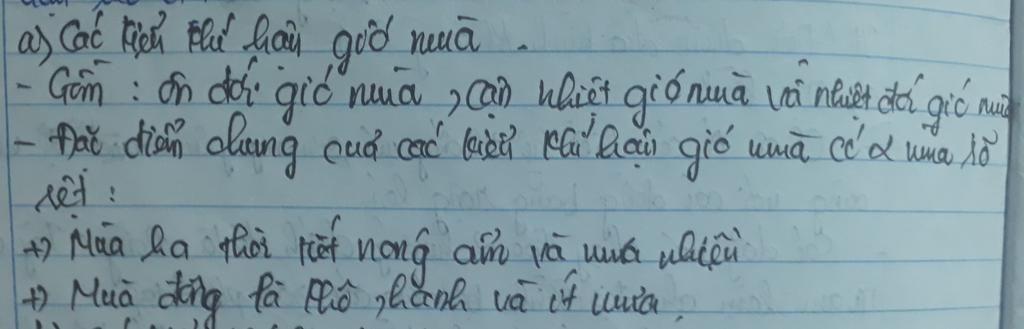 a) Các kiểu khí hậu gió mùa.
- Gồm: ôn đới gió mùa, cận nhiệt gió mùa và nhiệt đới gió mùa
- Đặc điểm chung của các kiểu khí hậu gió mùa có 2 mùa rõ
rệt:
+) Mùa hạ thời tiết nóng ẩm và mưa nhiều
+) Mùa đông là khô, hanh và ít mưa.